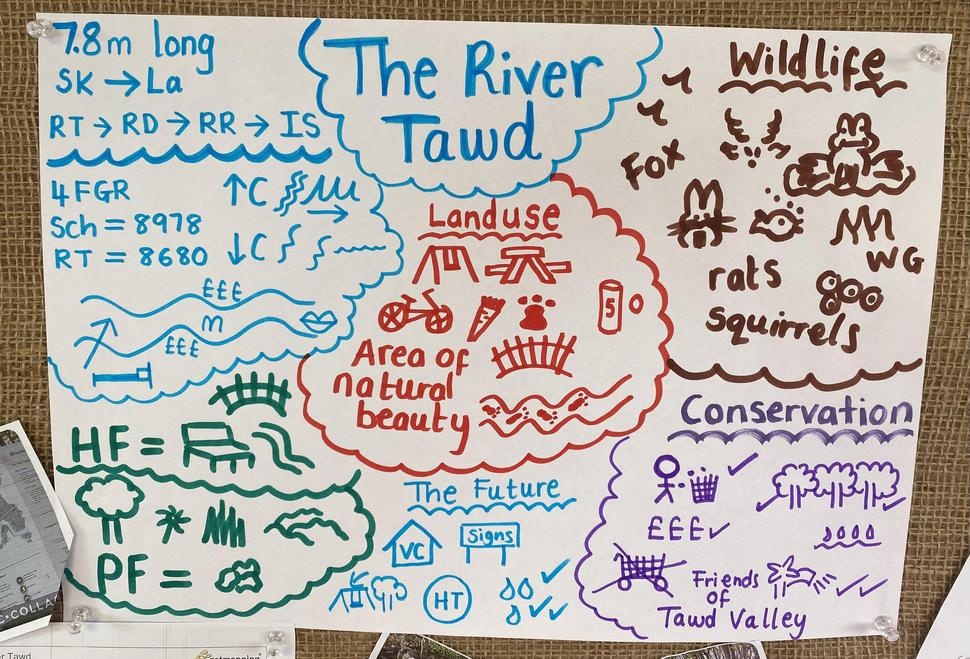 The River
Tawd
7.8m long
SK → La
RT → RD → RR → IS
4FGR
Sch = 8978
RT = 8680
↑C
↓C
£££
m
£££
Wildlife
Fox
WG
rats
squirrels
Landuse
5
Area of
natural
beauty
HF =
PF =
The Future
VC
Signs
HT
Conservation
£££✓
Friends
of
Tawd Valley
C•COLLA
er Tawd